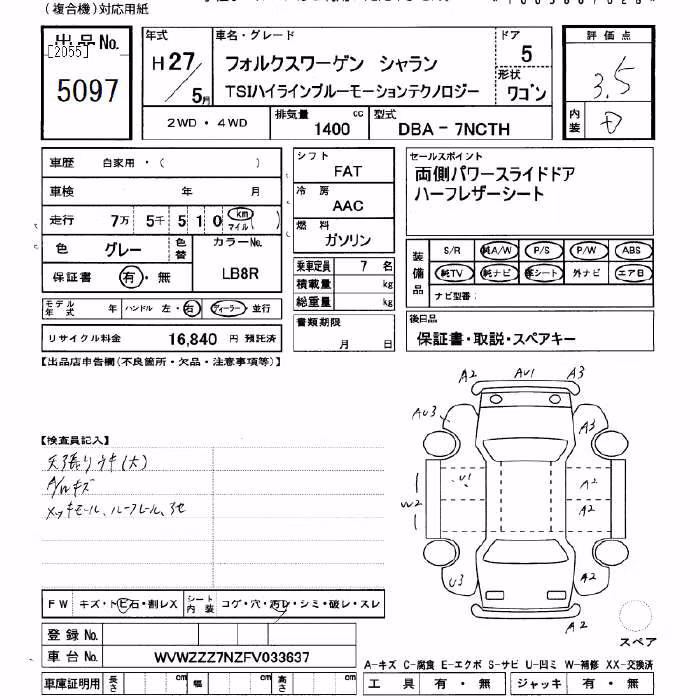 (複合機)対応用紙
出品No.
[2055]
5097
年式
H27/5月
車名・グレード
フォルクスワーゲン シャラン
TSIハイラインブルーモーションテクノロジー
ドア
5
形状
ワゴン
評価点
3.5
内装
D
2WD・4WD
排気量
1400 cc
型式
DBA-7NCTH
車歴 自家用・( )
車検 年 月
走行 7万 5千 5 1 0 km マイル( )
色 グレー
色替
カラーNo.
LB8R
保証書 有・無
モデル年式 年
ハンドル 左・右
ディーラー・並行
リサイクル料金 16,840 円 預託済
シフト
FAT
冷房
AAC
燃料
ガソリン
乗車定員 7 名
積載量 kg
総重量 kg
書類期限
月 日
セールスポイント
両側パワースライドドア
ハーフレザーシート
装備品
S/R 純A/W P/S P/W ABS
純TV 純ナビ 革シート 外ナビ エアB
ナビ型番:
後日品
保証書・取説・スペアキー
【出品店申告欄(不良箇所・欠品・注意事項等)】
【検査員記入】
天張りウキ(大)
A/Wキズ
メッキモール、ルーフレール、3セ
A2 AU1 A3
AU3 A3
U1 A2
W2 A2
U3 A2
A2
スペア
FW キズ・トビ石・割レX
シート内装 コゲ・穴・汚レ・シミ・破レ・スレ
登録No.
車台No. WVWZZZ7NZFV033637
車庫証明用 長さ cm 幅 cm 高さ cm
A-キズ C-腐食 E-エクボ S-サビ U-凹ミ W-補修 XX-交換済
工具 有・無 ジャッキ 有・無